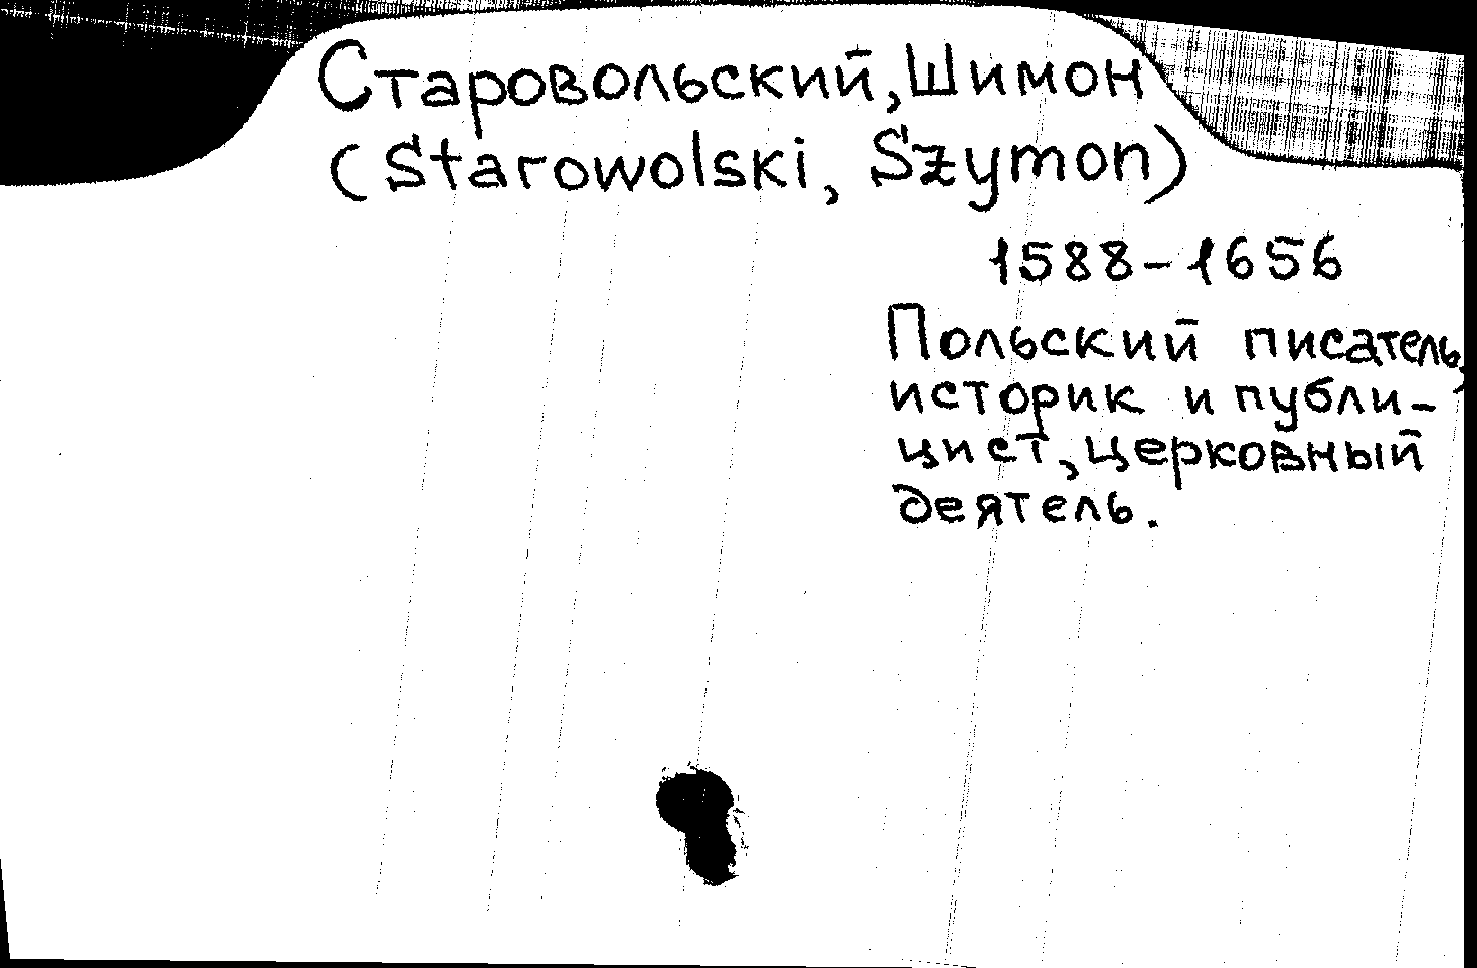 Старовольский, Шимон
(Starowolski, Szymon)
1588-1656
Польский писатель,
историк и публи-
цист, церковный
деятель.